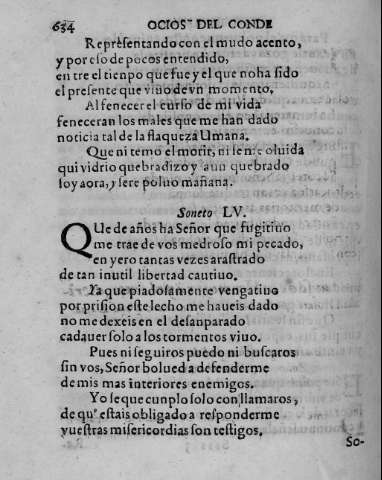 634 OCIOS DEL CONDE
Representando con el mudo acento,
y por eso de pocos entendido,
en tre el tienpo que fue y el que no ha sido
el presente que vino de vn momento.
Al fenecer el curso de mi vida
feneceran los males que me han dado
noticia tal de la flaqueza Umana.
Que ni temo el morir, ni se me oluida
qui vidrio quebradizo y aun quebrado
soy aora, y sere poluo mañana.
Soneto LV.
QUe de años ha Señor que fugitiuo
me trae de vos medroso mi pecado,
en yero tantas vezes arastrado
de tan inutil libertad cautiuo.
Ya que piadosamente vengatiuo
por prision este lecho me haueis dado
no me dexeis en el desanparado
cadauer solo a los tormentos viuo.
Pues ni seguiros puedo ni buscaros
sin vos, Señor bolued a defenderme
de mis mas interiores enemigos.
Yo se que cunplo solo con llamaros,
de qu' estais obligado a responderme
vuestras misericordias son testigos.
So-